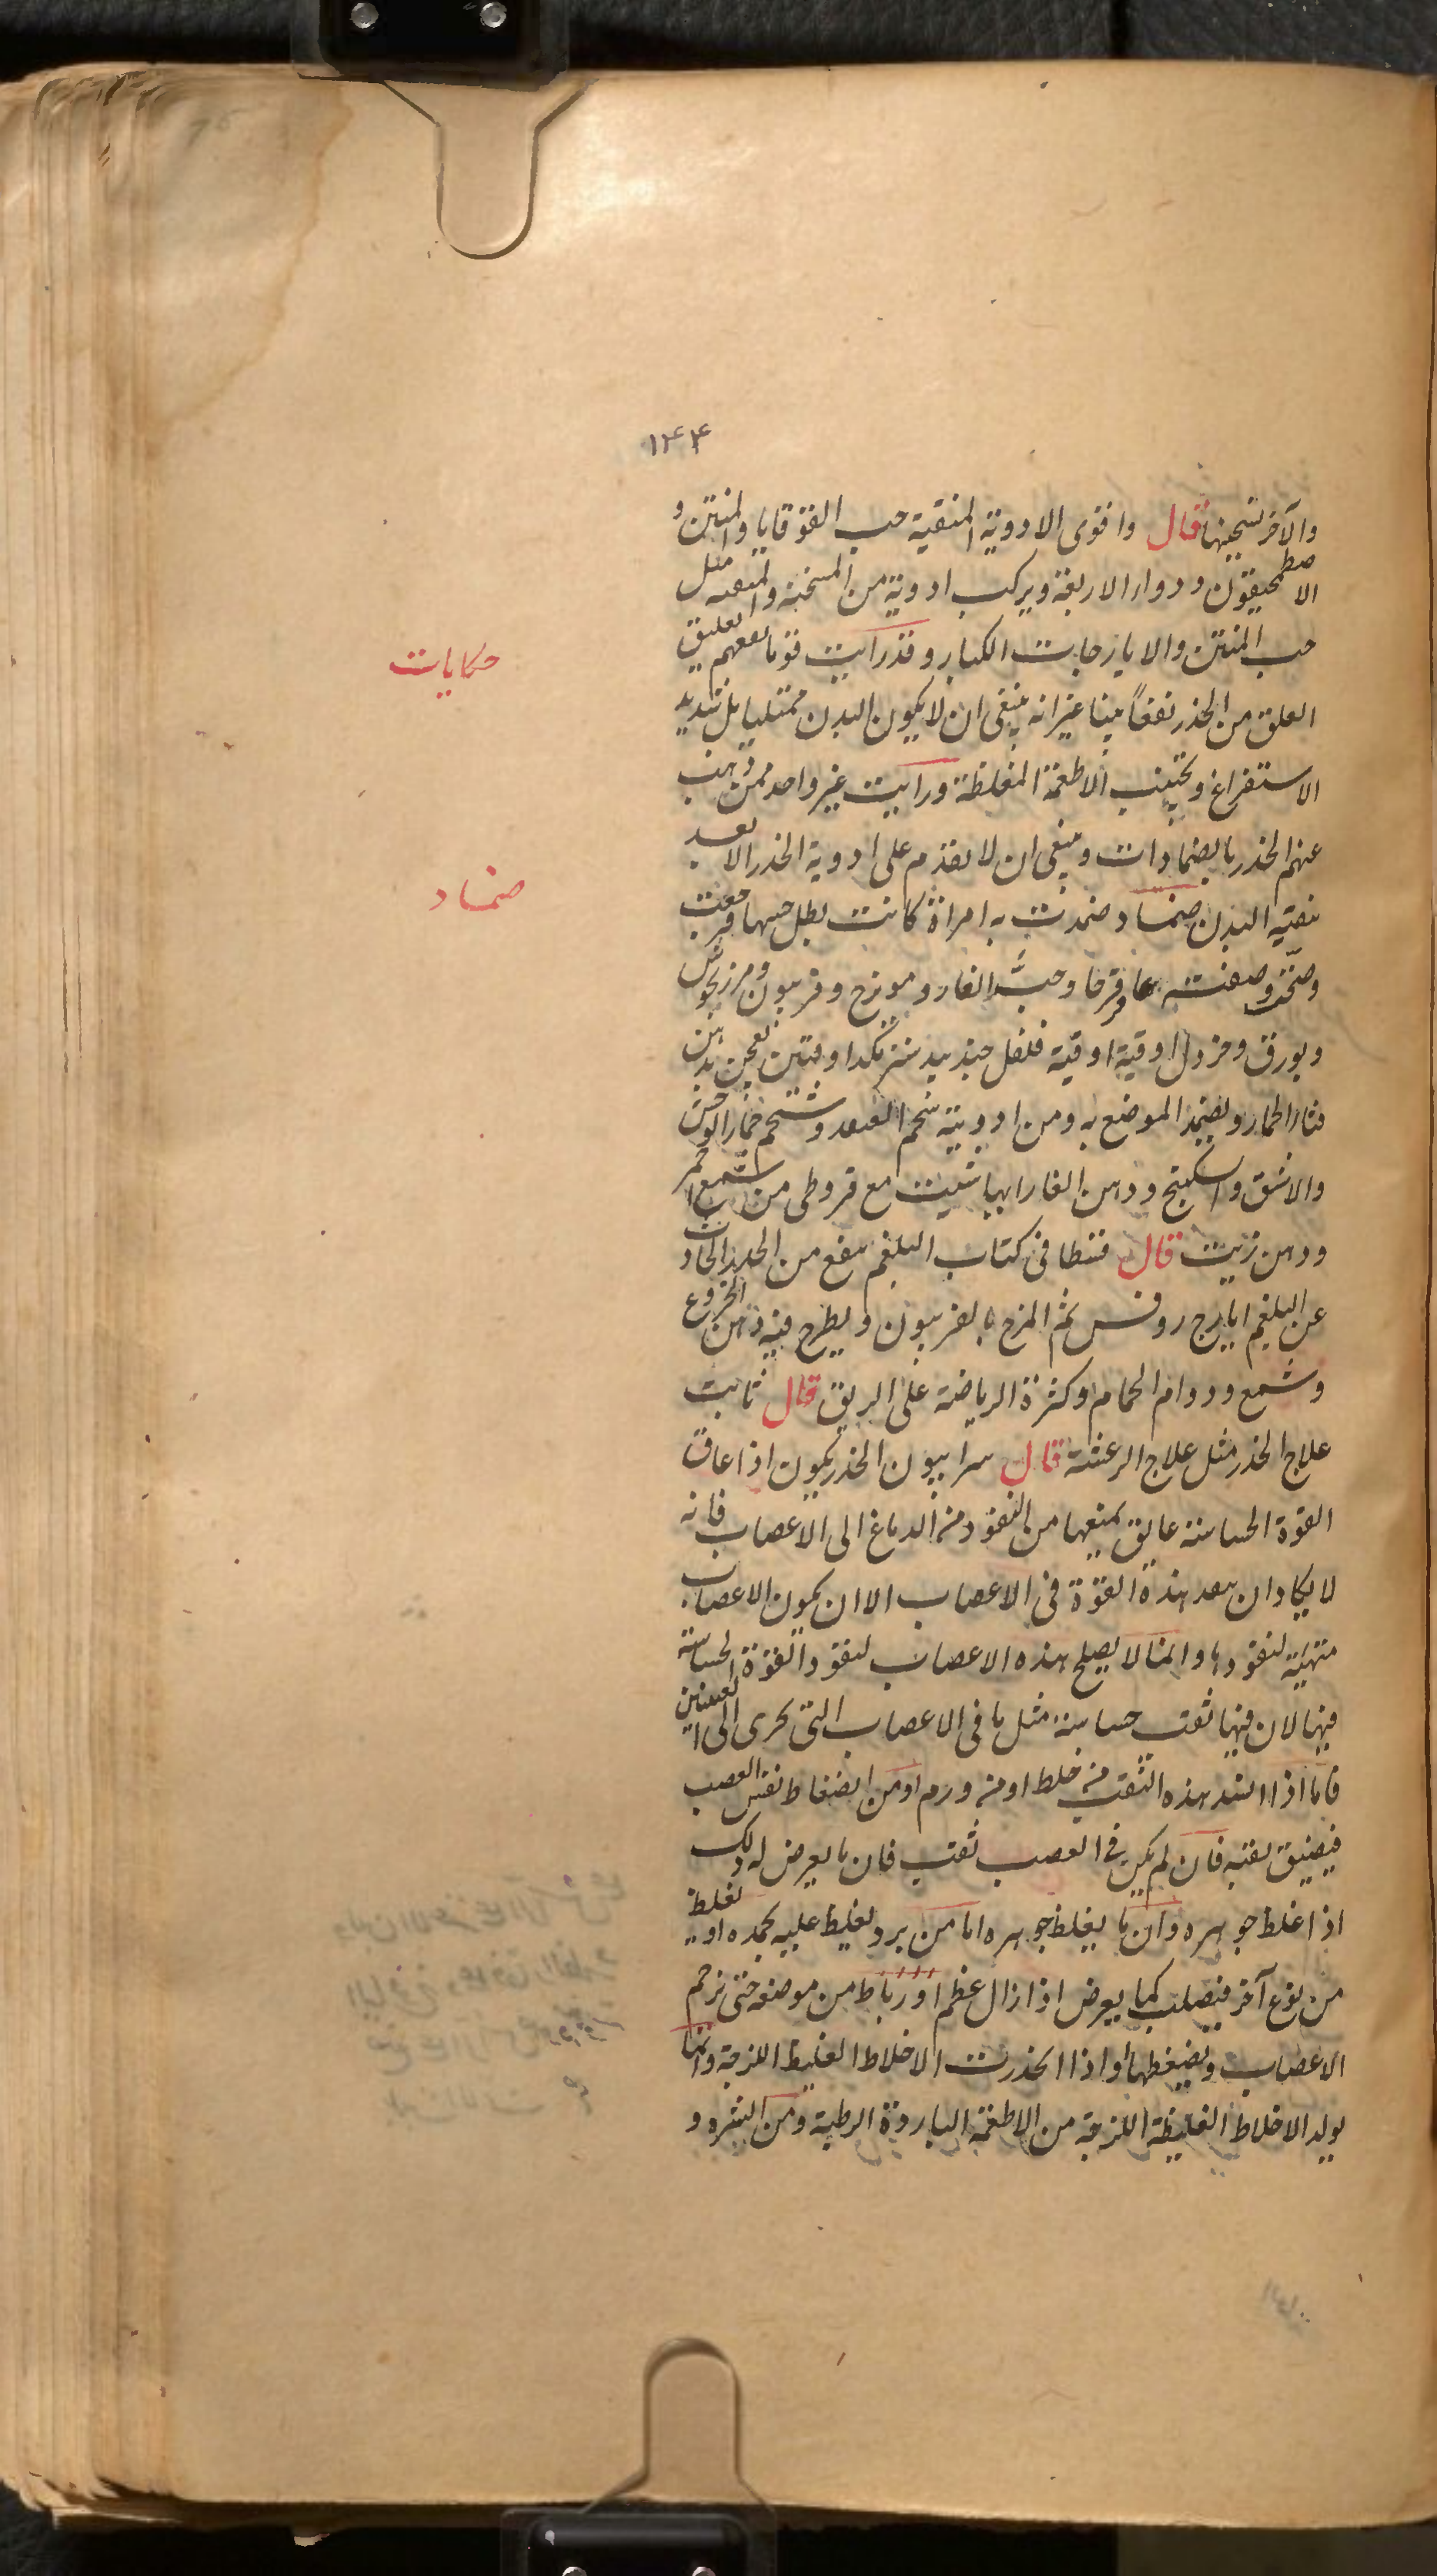 ١٤٤
والآخر تسخينها قال واقوى الادوية المنقية حب القوقايا والمنتن و
الاصطمحيقون ودواء الاربعة ويركب ادوية من المسخنة والمنقية مثل
حب المنتن والايارجات الكبار وقد رأيت قوما نفعهم تعليق
حكايات
العلق من الخدر نفعاً بينا غير انه ينبغى ان لا يكون البدن ممتليا بل شديد
الاستفراغ ويجتنب الاطعمة المغلظة ورأيت غير واحد ممن ذهب
عنهم الخدر بالضمادات وينبغى ان لا يقدم على ادوية الخدر الا بعد
ضماد
تنقية البدن ضماد ضمدت به امراة كانت بطل حسها فرجعت
وصحّت وصفته عاقرقرحا وحبّ الغار وميويزج وفربيون ومرزنجوش
وبورق وخردل اوقية اوقية فلفل جندبيدستر نكدا وقيتين تعجن بدهن
قثاء الحمار ويضمد الموضع به ومن ادويته شحم وشحم حمار الوحش
والاشق والسكبينج ودهن الغار ايها شيت مع قروطى من شمع احمر
ودهن زيت قال قسطا فى كتاب البلغم ينفع من الخدر الحادث
عن البلغم ايارج روفس ثم المرخ بالفربيون ويطرح فيه دهن الخروع
وشمع ودوام الحمام وكثرة الرياضة على الريق قال ثابت
علاج الخدر مثل علاج الرعشة قال سرابيون الخدر يكون اذا عاق
القوة الحساسة عايق يمنعها من النفوذ من الدماغ الى الاعصاب فانه
لا يكاد ان ينعد هذه القوة فى الاعصاب الا ان يكون الاعصاب
متهيئة لنفوذها وانما لا يصلح هذه الاعصاب لنفوذ القوة الحساسة
فيها لان فيها ثقب حساسة مثل ما فى الاعصاب التى تجرى الى العينين
فاما اذا انسد هذه الثقب من خلط او من ورم او من انضغاط نفس العصب
فيضيق ثقبه فان لم يكن فى العصب ثقب فان ما يعرض له ذلك
اذا غلظ جوهره وان ما يغلظ جوهره اما من برد يغلظ عليه يجمده او يغلظ
من نوع آخر فيصلب كما يعرض اذا زال عظم او رباط من موضعه حتى يزحم
الاعصاب ويضغطها او اذا انحدرت الاخلاط الغليظ اللزجة وانما
يولد الاخلاط الغليظة اللزجة من الاطعمة الباردة الرطبة ومن الشره و